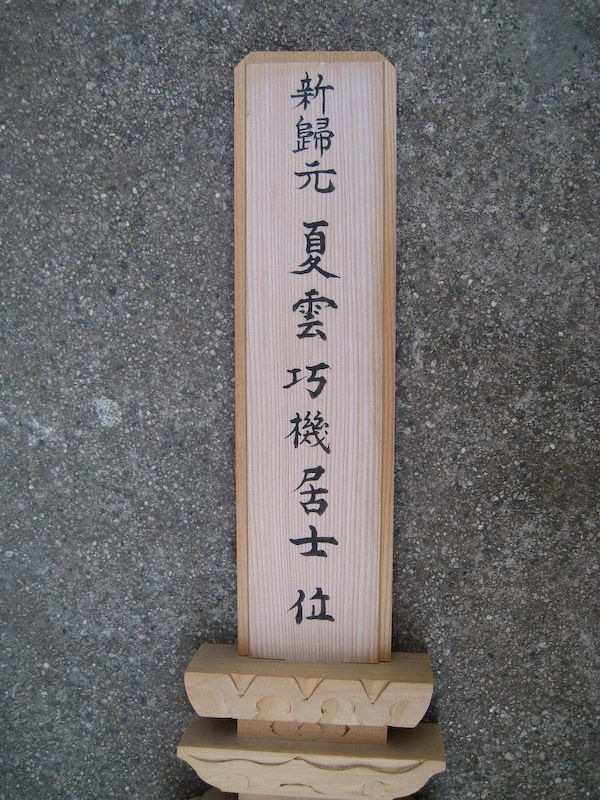 新歸元 夏雲巧機居士 位